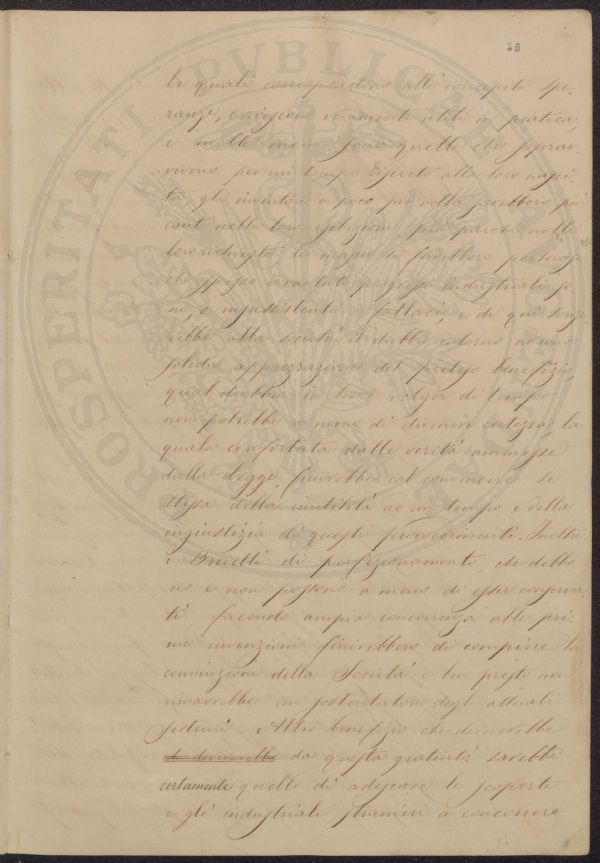 35
le quali corrispondono alle concepite spe-
ranze, e riescono veramente utili in pratica,
e molto meno sono quelle che soprav-
vivono per un tempo discreto alla loro nasci-
ta, gli inventori a poco per volta sarebbero più
cauti nelle loro esibizioni, più parchi nelle
loro richieste la massa si farebbe persuasa
che spesso i vantati progressi industriali so-
no, o insussistenti o fallaci, e di qui sorge-
rebbe alla società il dubbio intorno ad uno
solido apprezzazione del preteso benefizio,
qual dubbio in breve volger di tempo
non potrebbe a meno di divenire certezza, la
quale confortata dalle verità ammesse
dalla Legge, finirebbe col convincere se
stessa della inutilità ad un tempo e della
ingiustizia di questi provvedimenti. Inoltre
i Brevetti di perfezionamento, che debbo-
no e non possono a meno di esser conserva-
ti facendo ampia concorrenza alle pri-
me invenzioni finirebbero di compiere la
convinzione della Società e ben presto non
rimarrebbe un sostentatore degli attuali
Sistemi. Altro benefizio che deriverebbe
che deriverebbe da questa gratuità sarebbe
certamente quello di adescare le scoperte
e gli industriali stranieri a concorrere
PROSPERITATI PUBLICAE AUGENDAE